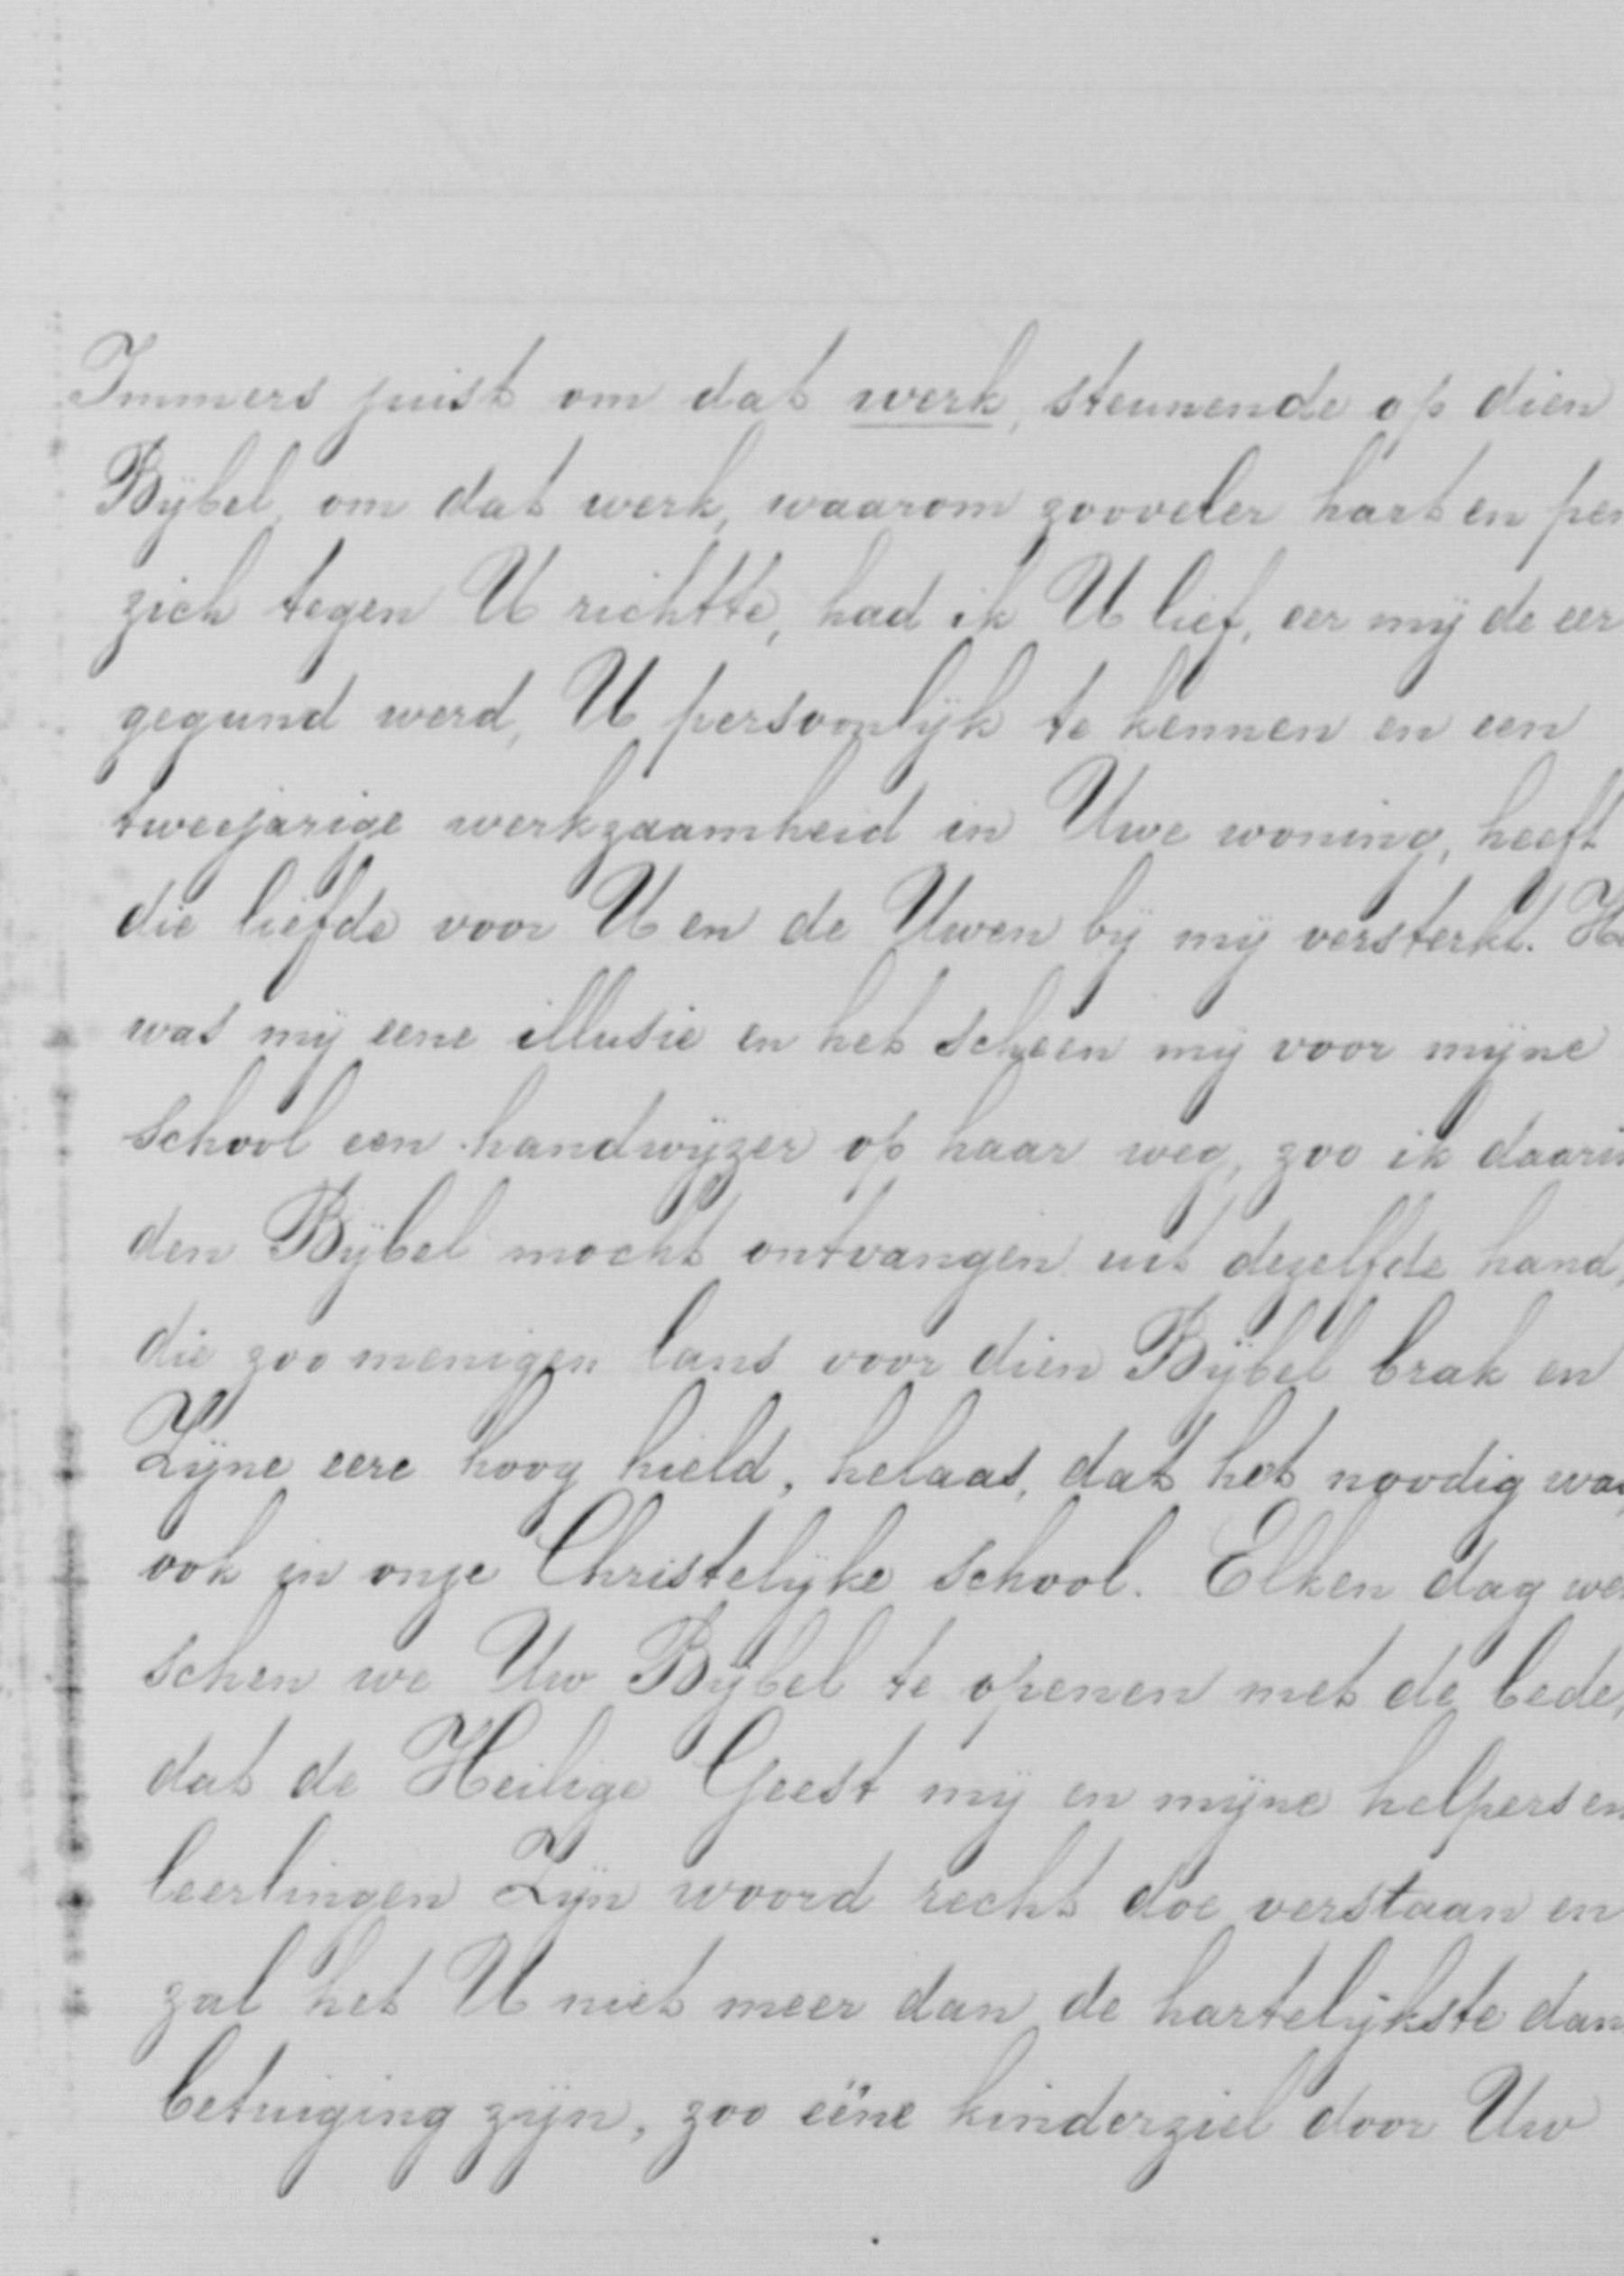 Immers juist om dat werk, steunende op dien
Bijbel, om dat werk, waarom zooveler hart en pen
zich tegen U richtte, had ik U lief, eer mij de eer
gegund werd, U persoonlijk te kennen en een
tweejarige werkzaamheid in Uwe woning, heeft
die liefde voor U en de Uwen bij mij versterkt. He
was mij eene illusie en het scheen mij voor mijne
school een handwijzer op haar weg, zoo ik daarin
den Bijbel mocht ontvangen uit dezelfde hand,
die zoo menigen lans voor dien Bijbel brak en
Zijne eere hoog hield, helaas, dat het noodig was,
ook in onze Christelijke school. Elken dag wen
schen we Uw Bijbel te openen met de bede,
dat de Heilige Geest mij en mijne helpers en
leerlingen Zijn woord recht doe verstaan en
zal het U niet meer dan de hartelijkste dan
betuiging zijn, zoo ééne kinderziel door Uw